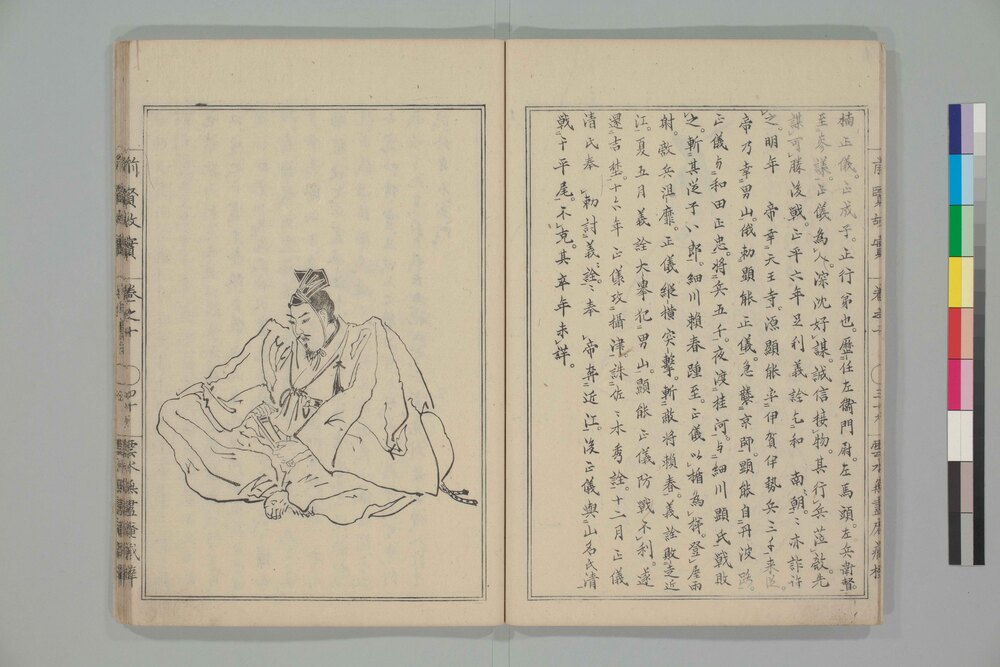 楠正儀。正成子。正行弟也。歴任左衛門尉。左馬頭。左兵衛督。
至參議。正儀為人。深沈好謀。誠信接物。其行兵莅敵。先
謀可勝後戰。正平六年足利義詮乞和 南朝。〻亦詐許
之。明年 帝幸天王寺。源顯能率伊賀伊勢兵三千来從。
帝乃幸男山。俄勅顯能正儀。急襲京師。顯能自丹波路。
正儀与和田正忠。將兵五千。夜渡桂河。与細川顯氏戰敗
之。斬其從子八郎。細川賴春踵至。正儀以楯為梯。登屋雨
射。敵兵沮靡。正儀縱横突擊。斬敵将賴春。義詮敗走近
江。夏五月義詮大擧犯男山。顯能正儀防戰不利。遂
還吉埜。十六年正儀攻攝津。誅佐〻木秀詮。十二月正儀
清氏奉 勅討義詮。〻奉 帝奔近江。後正儀與山名氏清
戰于平尾。不克。其卒年未詳。
前賢故實 卷之十
雲水無盡庵藏梓